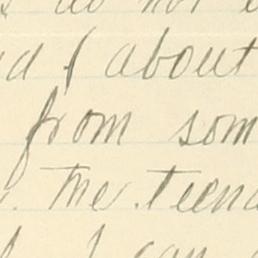 do not
about
from som
. The teend
I can